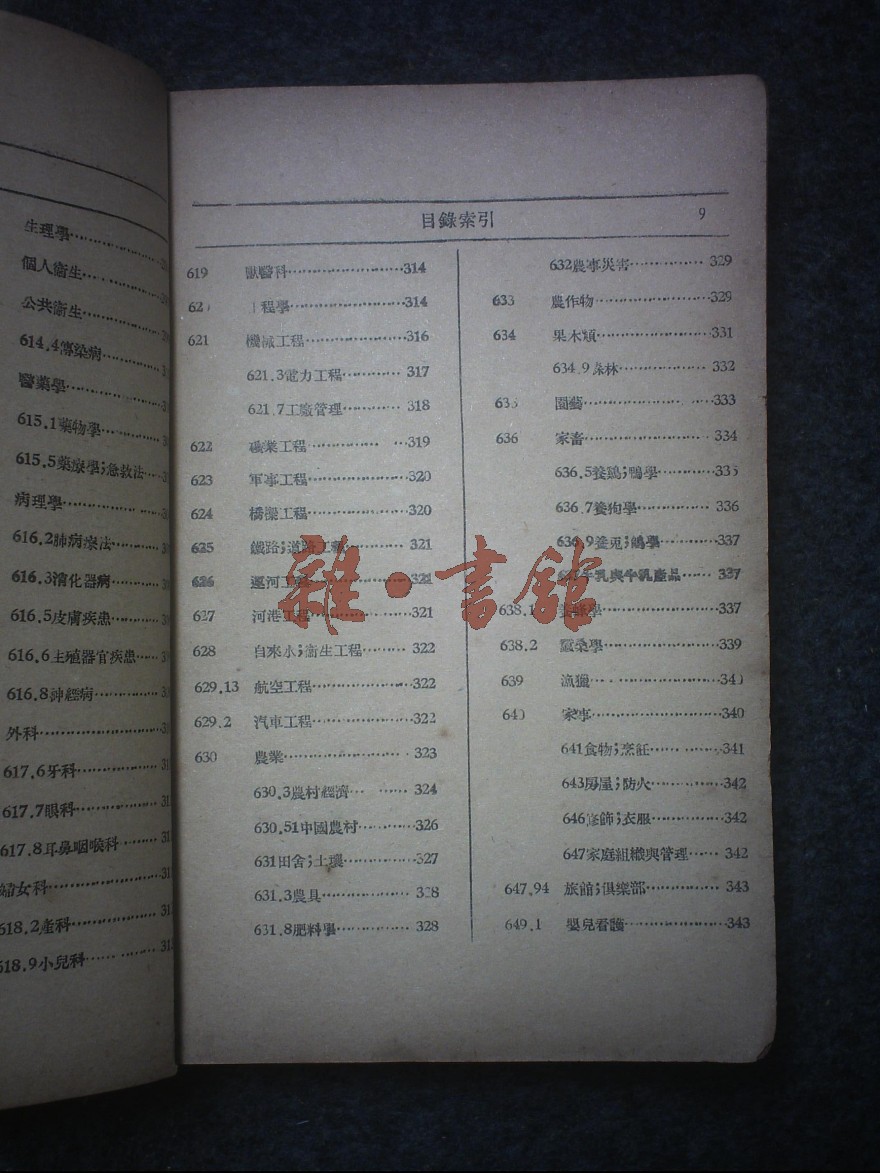 生理學
個人衞生
公共衞生
614.4傳染病
醫藥學
615.1藥物學
615.5藥療學;急救法
病理學
616.2肺病療法
616.3消化器病
616.5皮膚疾患
616.6生殖器官疾患
616.8神經病
外科
617.6牙科
617.7眼科
617.8耳鼻咽喉科
婦女科
618.2產科
618.9小兒科
目錄索引 9
619 獸醫科 314
程學 314
621 機械工程 316
621.3電力工程 317
621.7工廠管理 318
622 礦業工程 319
623 軍事工程 320
624 橋樑工程 320
625 鐵路;道路工程 321
626 運河工程 321
627 河港工程 321
628 自來水;衞生工程 322
629.13 航空工程 322
629.2 汽車工程 322
630 農業 323
630.3農村經濟 324
630.51中國農村 326
631田舍;土壤 327
631.3農具 328
631.8肥料學 328
632農事災害 329
633 農作物 329
634 果木類 331
634.9森林 332
635 園藝 333
636 家畜 334
636.5養鷄;鴨學 335
636.7養狗學 336
636.9養兎;鴿學 337
牛乳與牛乳產品 337
638.1 養蜂學 337
638.2 蠶桑學 339
639 漁獵 340
640 家事 340
641食物;烹飪 341
643房屋;防火 342
646修飾;衣服 342
647家庭組織與管理 342
647.94 旅館;俱樂部 343
649.1 嬰兒看護 343
雜·書館